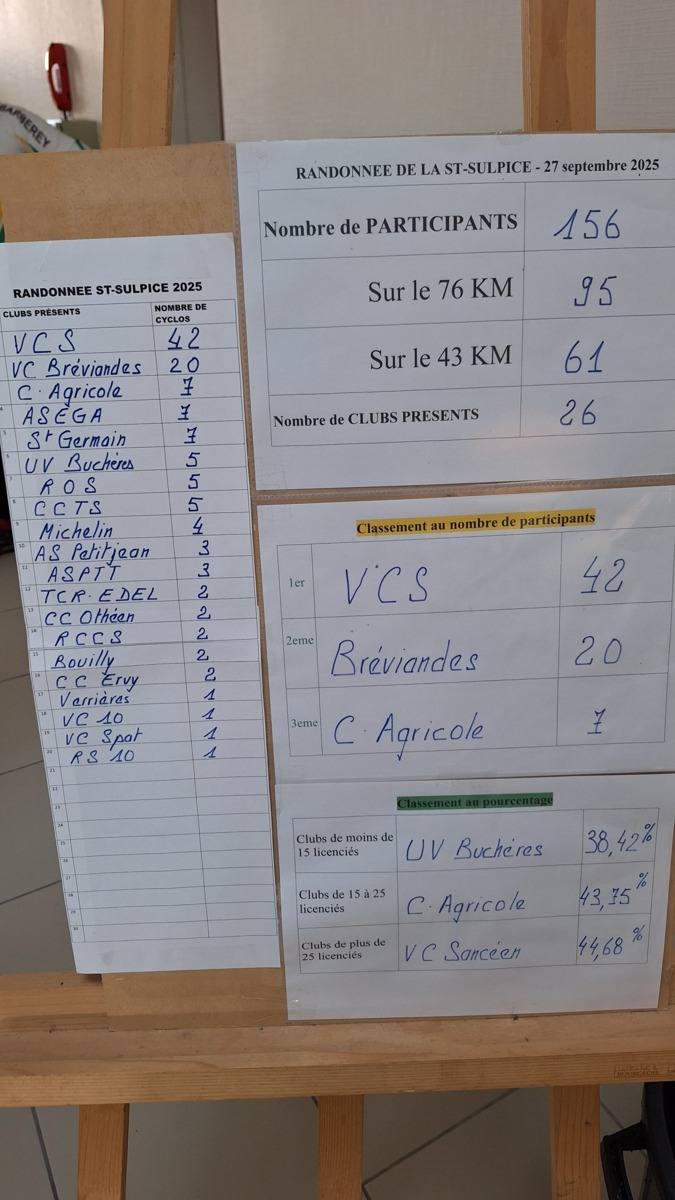 BARBEREY
RANDONNEE ST-SULPICE 2025
CLUBS PRÉSENTS NOMBRE DE CYCLOS
VCS 42
VC Bréviandes 20
C. Agricole 7
4 ASEGA 7
5 St Germain 7
6 UV Buchères 5
7 ROS 5
8 CCTS 5
9 Michelin 4
10 AS Petitjean 3
11 ASPTT 3
12 TCR. EDEL 2
13 CC Othéen 2
14 RCCS 2
15 Bouilly 2
16 CC Ervy 2
17 Verrières 1
18 VC 10 1
19 VC Spot 1
20 RS 10 1
21
22
23
24
25
26
27
28
29
30
RANDONNEE DE LA ST-SULPICE - 27 septembre 2025
Nombre de PARTICIPANTS 156
Sur le 76 KM 95
Sur le 43 KM 61
Nombre de CLUBS PRESENTS 26
Classement au nombre de participants
1er VCS 42
2eme Bréviandes 20
3eme C. Agricole 7
Classement au pourcentage
Clubs de moins de
15 licenciés UV Buchères 38,42%
Clubs de 15 à 25
licenciés C. Agricole 43,75%
Clubs de plus de
25 licenciés VC Sancéen 44,68%